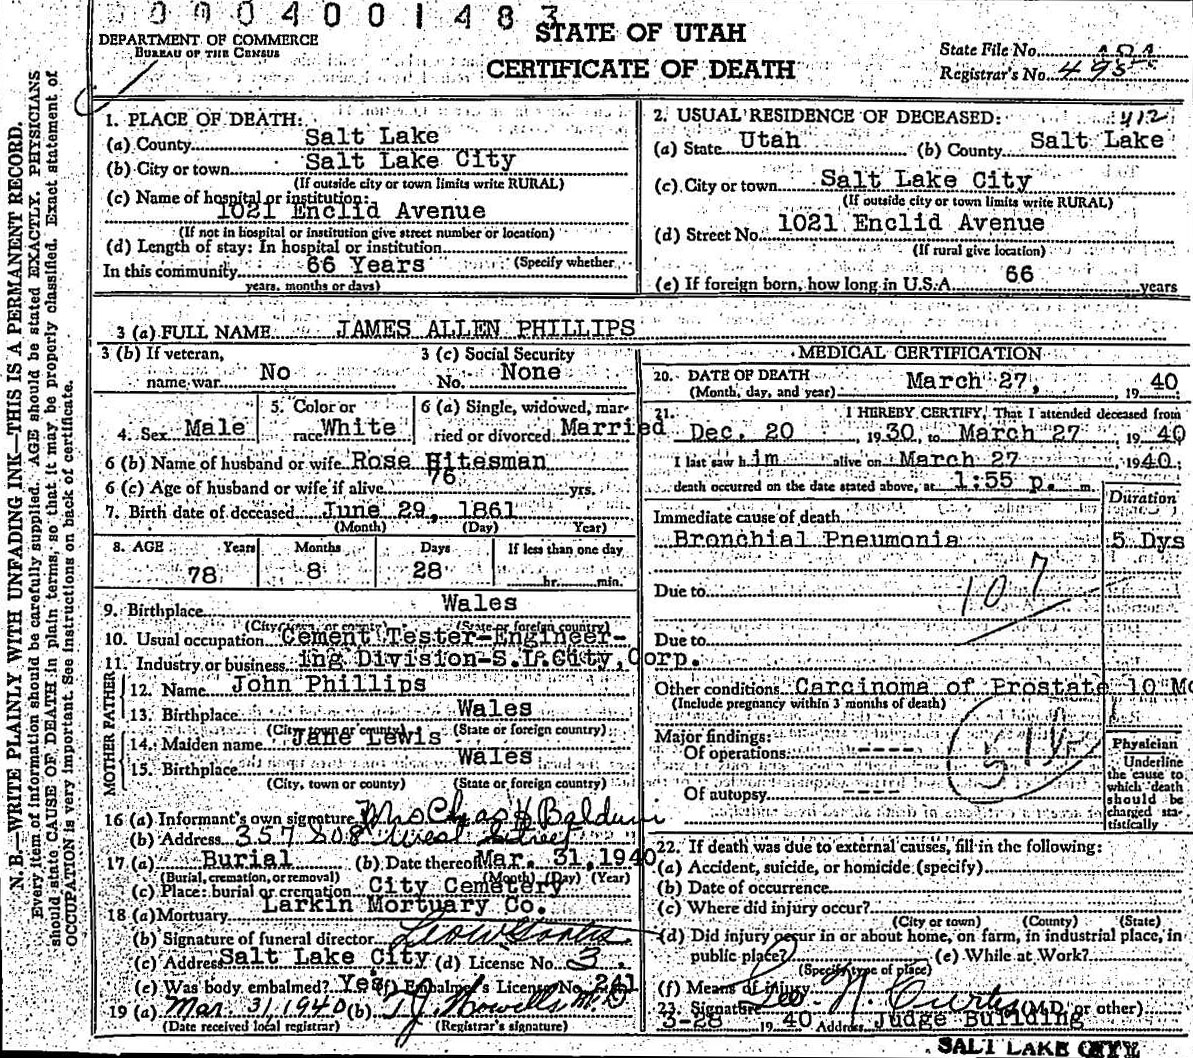 0004001483
STATE OF UTAH
DEPARTMENT OF COMMERCE
BUREAU OF THE CENSUS
CERTIFICATE OF DEATH
State File No.
Registrar's No. 495
N. B.—WRITE PLAINLY WITH UNFADING INK—THIS IS A PERMANENT RECORD.
Every item of information should be carefully supplied. AGE should be stated EXACTLY. PHYSICIANS
should state CAUSE OF DEATH in plain terms, so that it may be properly classified. Exact statement of
OCCUPATION is very important. See instructions on back of certificate.
1. PLACE OF DEATH:
(a) County Salt Lake
(b) City or town Salt Lake City
(If outside city or town limits write RURAL)
(c) Name of hospital or institution:
1021 Enclid Avenue
(If not in hospital or institution give street number or location)
(d) Length of stay: In hospital or institution
In this community 66 Years (Specify whether
years, months or days)
2. USUAL RESIDENCE OF DECEASED: 412
(a) State Utah (b) County Salt Lake
(c) City or town Salt Lake City
(If outside city or town limits write RURAL)
(d) Street No. 1021 Enclid Avenue
(If rural give location)
(e) If foreign born, how long in U.S.A. 66 years
3 (a) FULL NAME JAMES ALLEN PHILLIPS
3 (b) If veteran, name war No
3 (c) Social Security No. None
4. Sex Male
5. Color or race White
6 (a) Single, widowed, married or divorced Married
6 (b) Name of husband or wife Rose Hitesman
6 (c) Age of husband or wife if alive 76 yrs.
7. Birth date of deceased June 29, 1861
(Month) (Day) Year)
8. AGE Years Months Days If less than one day
78 8 28 hr. min.
9. Birthplace Wales
(City, town, or county) (State or foreign country)
10. Usual occupation Cement Tester-Engineer-
11. Industry or business ing Division-S.L.City, Corp.
FATHER
12. Name John Phillips
13. Birthplace Wales
(City, town or county) (State or foreign country)
MOTHER
14. Maiden name Jane Lewis
15. Birthplace Wales
(City, town or county) (State or foreign country)
16 (a) Informant's own signature Mrs Chas H Balduni
(b) Address 357 So 8 West Street
17 (a) Burial (b) Date thereof Mar. 31, 1940
(Burial, cremation, or removal) (Month) (Day) (Year)
(c) Place: burial or cremation City Cemetery
18 (a) Mortuary Larkin Mortuary Co.
(b) Signature of funeral director
(c) Address Salt Lake City (d) License No. 3
(e) Was body embalmed? Yes (f) Embalmer's License No. 241
19 (a) Mar. 31, 1940 (b) T J Howells M.D
(Date received local registrar) (Registrar's signature)
MEDICAL CERTIFICATION
20. DATE OF DEATH March 27, 1940
(Month, day, and year)
21. I HEREBY CERTIFY, That I attended deceased from
Dec. 20, 1930, to March 27 1940
I last saw him alive on March 27 1940;
death occurred on the date stated above, at 1:55 p. m.
Duration
Immediate cause of death
Bronchial Pneumonia 5 Dys
Due to 107
Due to
Other conditions Carcinoma of Prostate 10 Mo
(Include pregnancy within 3 months of death)
Major findings:
Of operations ----
Of autopsy ----
Physician
Underline
the cause to
which death
should be
charged statistically
22. If death was due to external causes, fill in the following:
(a) Accident, suicide, or homicide (specify)
(b) Date of occurrence
(c) Where did injury occur?
(City or town) (County) (State)
(d) Did injury occur in or about home, on farm, in industrial place, in
public place? (e) While at Work?
(Specify type of place)
(f) Means of injury
23. Signature Geo. N. Curtis (M.D. or other)
3-28 1940 Address Judge Building
SALT LAKE CITY